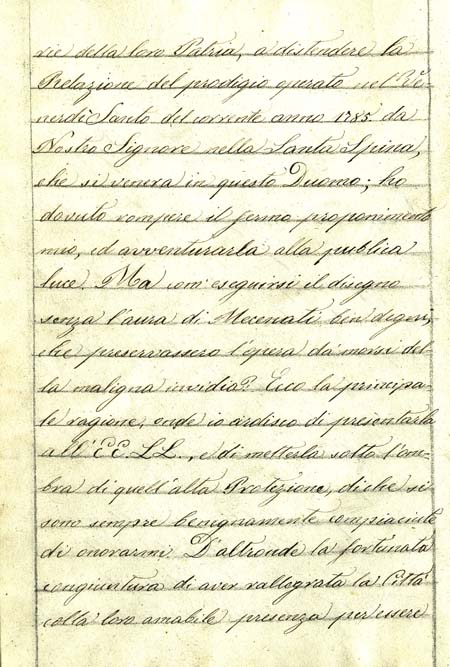 rie della loro Patria, a distendere la
Relazione del prodigio operato nel Ve-
nerdì Santo del corrente anno 1785 da
Nostro Signore nella Santa Spina,
che si venera in questo Duomo; ho
dovuto rompere il fermo proponimento
mio, ed avventurarla alla publica
luce. Ma com' eseguirsi il disegno
senza l'aura di Mecenati ben degni,
che preservassero l'opera da' morsi del-
la maligna invidia? Ecco la principa-
le ragione, onde io ardisco di presentarla
all' EE. LL., e di metterla sotto l'om-
bra di quell'alta Protezione, di che si
sono sempre benignamente compiaciute
di onorarmi. D'altronde la fortunata
congiuntura di aver rallegrata la Città
colla loro amabile presenza per essere